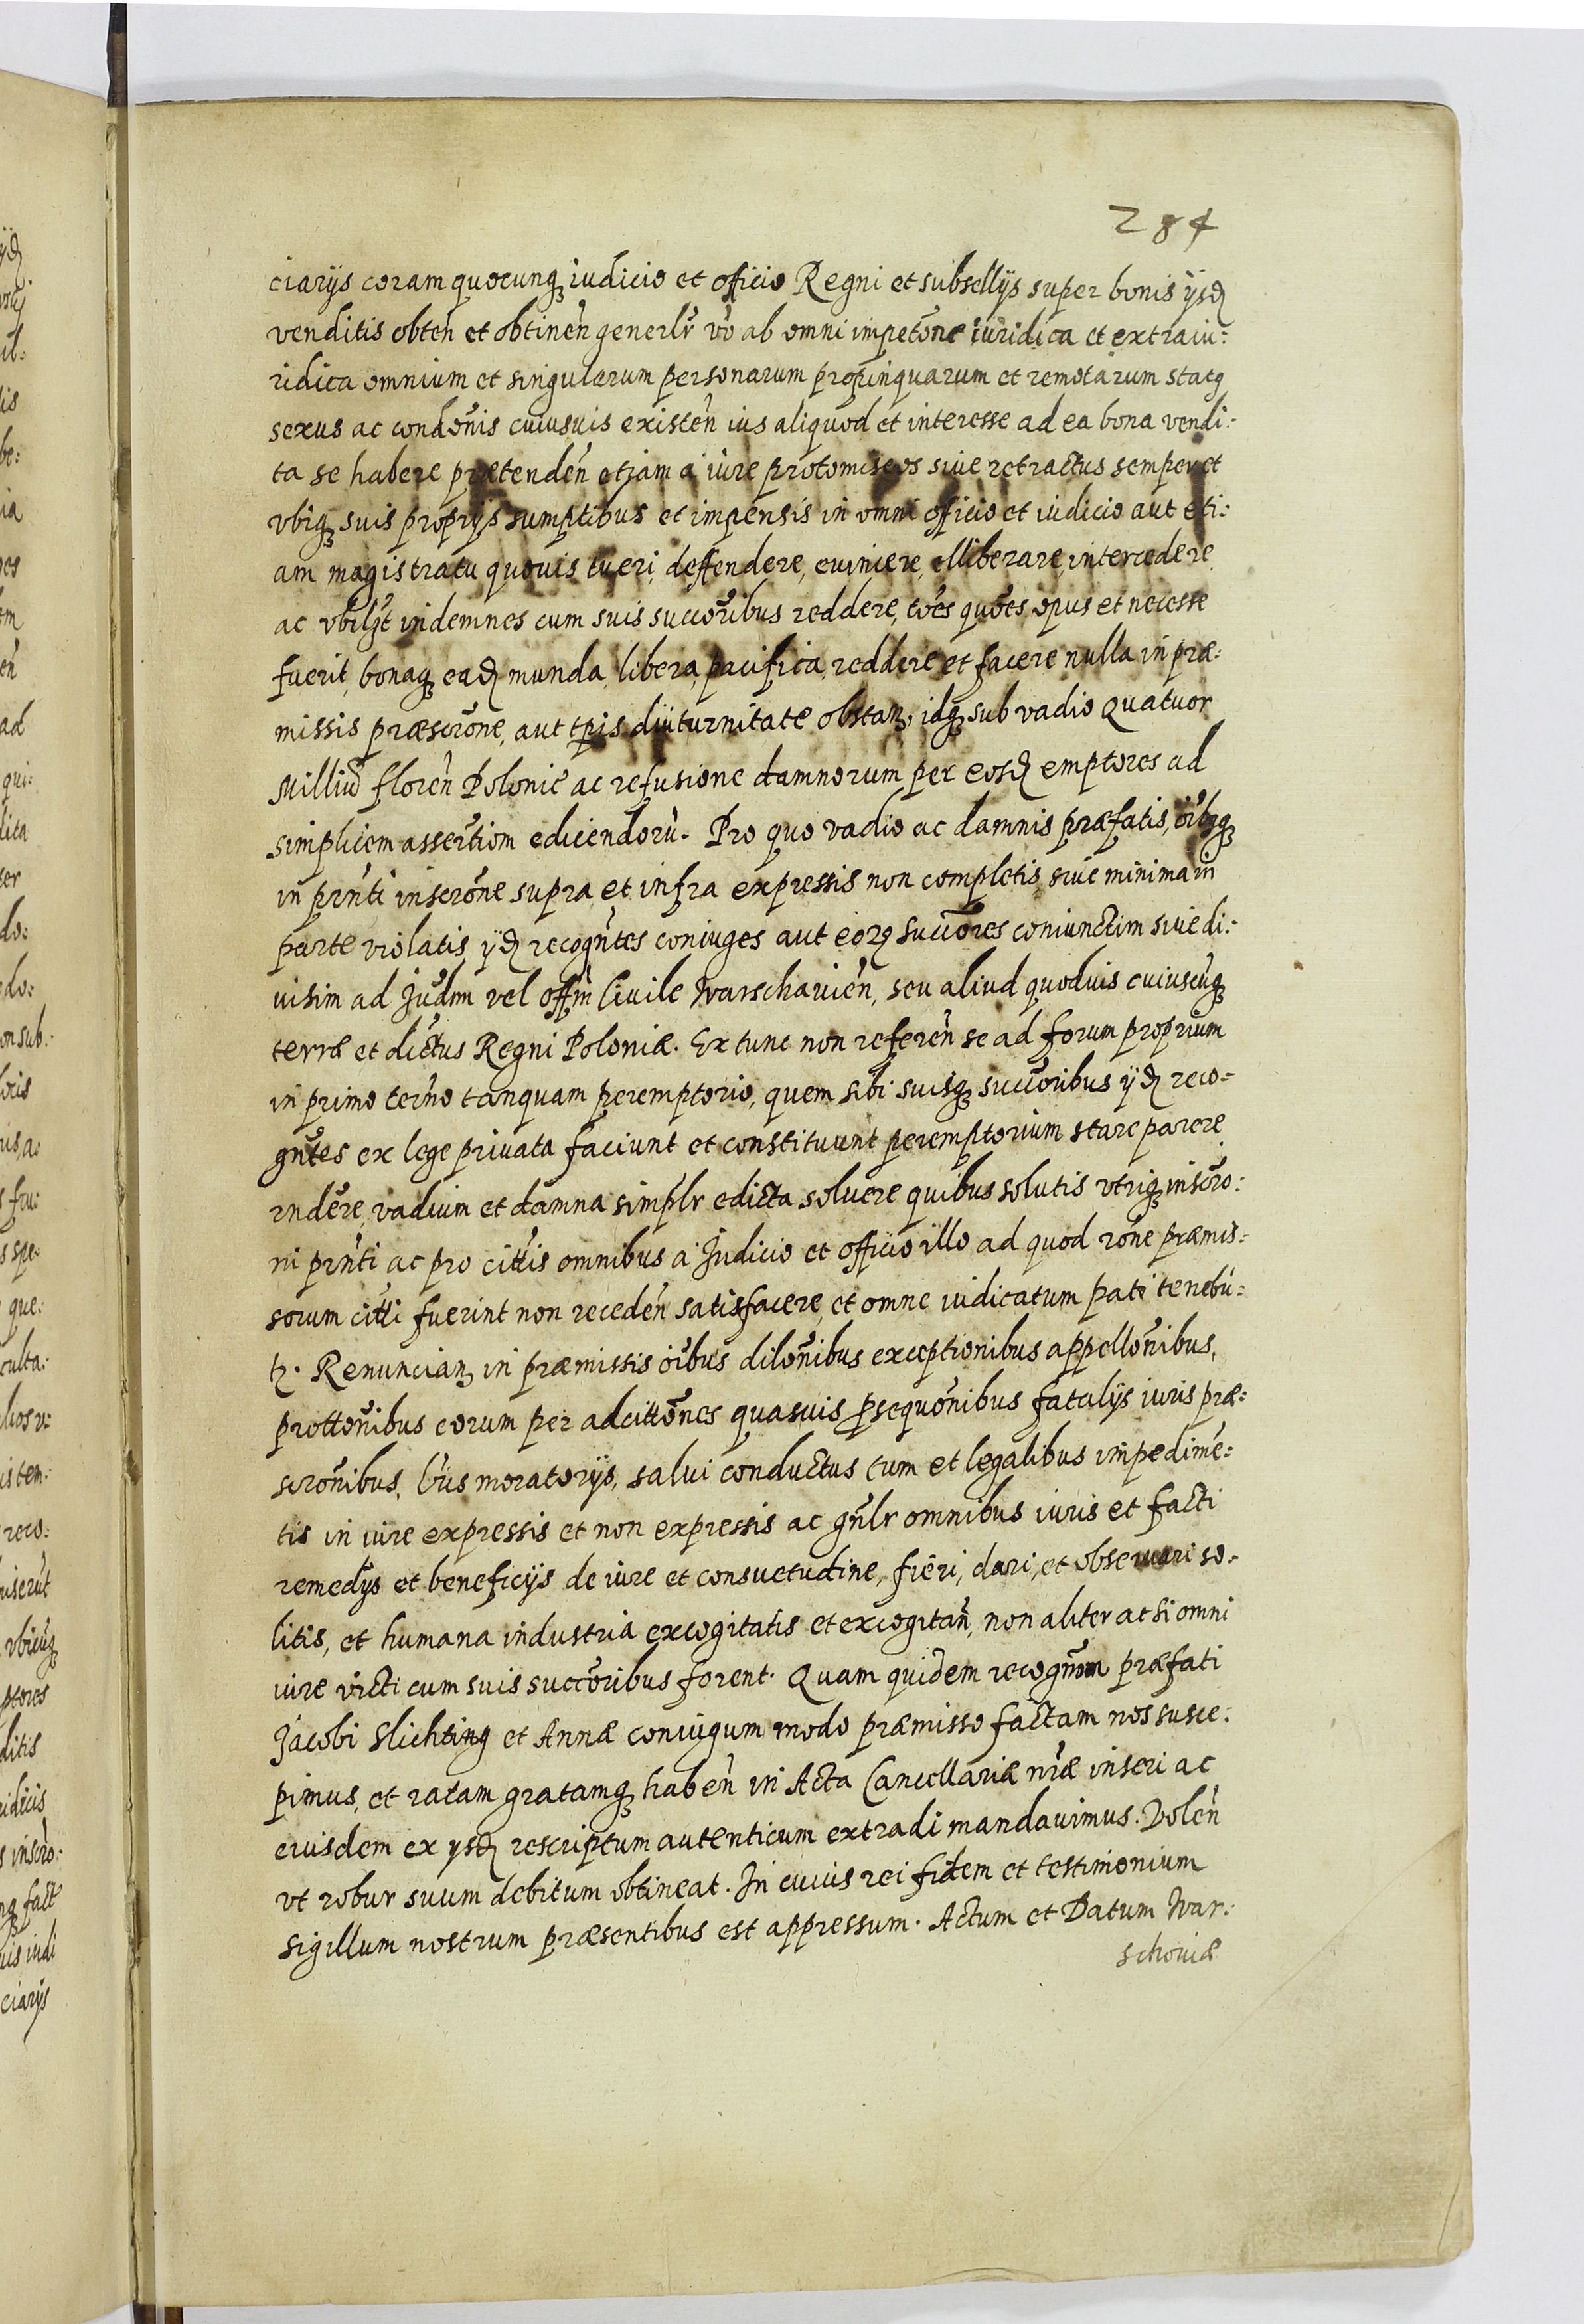 284
ciarÿs coram quocunq̨ iudicio et officio Regni et subsellÿs super bonis ÿsd̨
venditis obteñ et obtineñ generlr̃ võ ab omni impetõne iuridica et extraiu:
ridica omnium et singularum personarum propinquarum et remotarum statq
sexus ac condõnis cuiusuis existeñ ius aliquod et interesse ad ea bona vendi:
ta se habere prætendeñ etiam à iure protomiseos siue retractus semper et
vbiq̨ suis proprÿs sumptibus et impensis in omni officio et iudicio aut eti:
am magistratu quouis tueri, deffendere, euincere, elliberare, intercedere
ac vbilȝt indemnes cum suis succõribus reddere, tões quões opus et necesse
fuerit, bonaq̨ ead̨ munda, libera, pacifica, reddere et facere nulla in præ:
missis præscrõne, aut tp̃is diuturnitate obstaȝ, idq̨ sub vadio Quatuor
Milliũ floreñ Polonic̃ ac refusione damnorum per eosd̨ emptores ad
simplicem assertiom̃ edicendorũ. Pro quo vadio ac damnis præfatis, õibȝq̨
in prñti inscrõne supra et infra expressis non completis siue minima in
parte violatis, ÿd̨ recogñtes coniuges aut eoꝝ succõres coniunctim siue di:
uisim ad Jud̃m vel offm̃ Ciuile Warschauieñ, seu aliud quoduis cuiuscũq̨
terræ et dictus Regni Poloniæ. Extunc non refereñ se ad forum proprium
in primo term̃o tanquam peremptorio, quem sibi suisq̨ succõribus ÿd̨ reco:
gñtes ex lege priuata faciunt et constituunt peremptorium stare parere
rnd̃ere, vadium et damna simplr̃ edicta soluere quibus solutis vtriq̨ inscrõ:
ni prñti ac pro cittis omnibus à Judicio et officio illo ad quod rõne præmis:
sorum citti fuerint non recedeñ satisfacere, et omne iudicatum pati tenebũ:
tꝛ. Renunciaȝ in præmissis õibus dilõnibus exceptionibus appellõnibus,
prottõnibus eorum per adcittõnes quasuis p̱sequõnibus fatalÿs iuris præ:
scrõnibus, Lr̃is moratorÿs, salui conductus tum et legalibus impedimẽ:
tis in iure expressis et non expressis ac gñlr omnibus iuris et facti
remedÿs et beneficÿs de iure et consuetudine, fieri, dari, et obseruari so:
litis, et humana industria excogitatis et excogitañ, non aliter ac si omni
iure victi cum suis succõribus forent. Quam quidem recognõm præfati
Jacobi Slichting et Annæ coniugum modo præmisso factam nos susce:
pimus, et ratam gratamq̨ habeñ in Acta Cancellariæ nr̃æ inseri ac
eiusdem ex ÿsd̨ rescriptum autenticum extradi mandauimus. Voleñ
vt robur suum debitum obtineat. In cuius rei fidem et testimonium
sigillum nostrum præsentibus est appressum. Actum et Datum War:
schouiæ